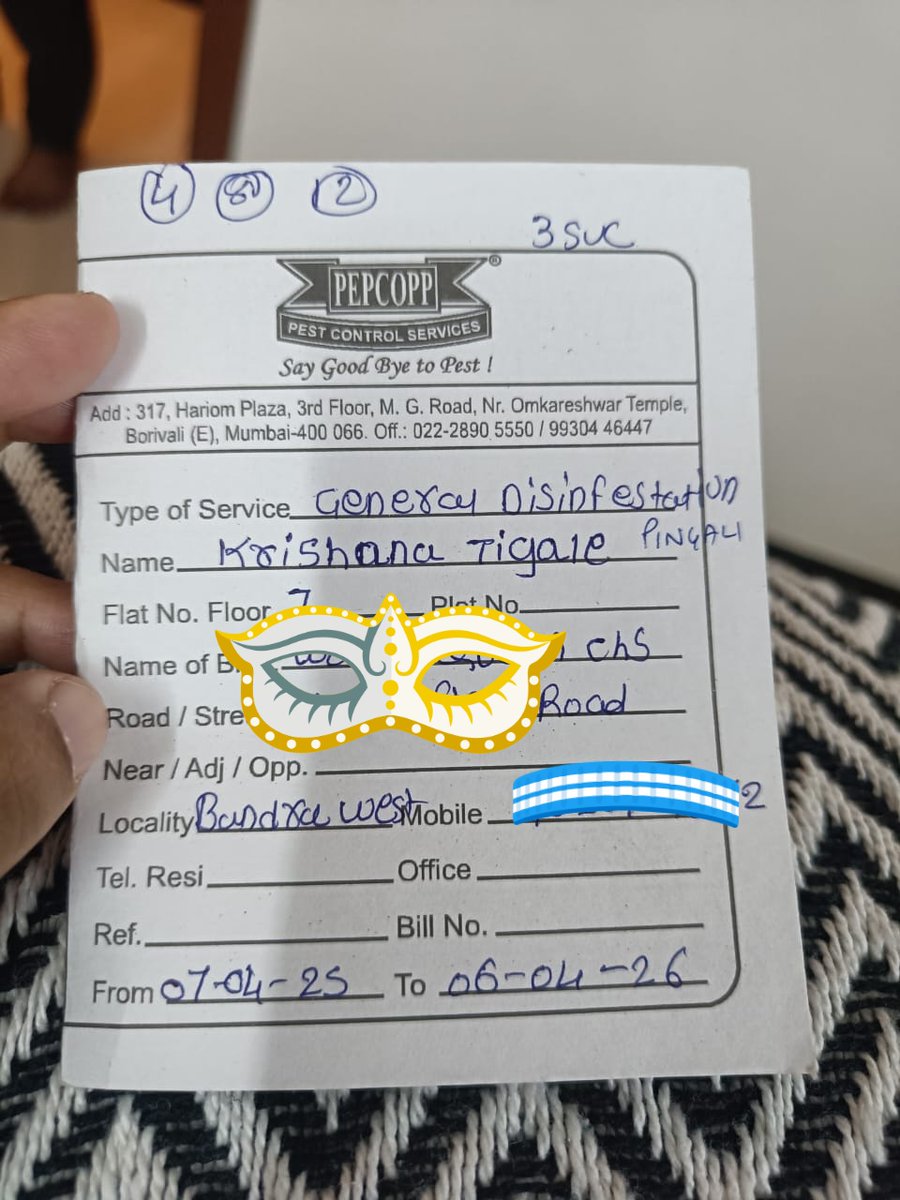 4 2
3 SVC
PEPCOPP ®
PEST CONTROL SERVICES
Say Good Bye to Pest !
Add : 317, Hariom Plaza, 3rd Floor, M. G. Road, Nr. Omkareshwar Temple,
Borivali (E), Mumbai-400 066. Off.: 022-2890 5550 / 99304 46447
Type of Service General Disinfestation
Name Krishana Tigale PINGALI
Flat No. Floor 7 Plot No.
Name of CHS
Road / Road
Near / Adj / Opp.
Locality Bandra West Mobile 2
Tel. Resi Office
Ref. Bill No.
From 07-04-25 To 06-04-26